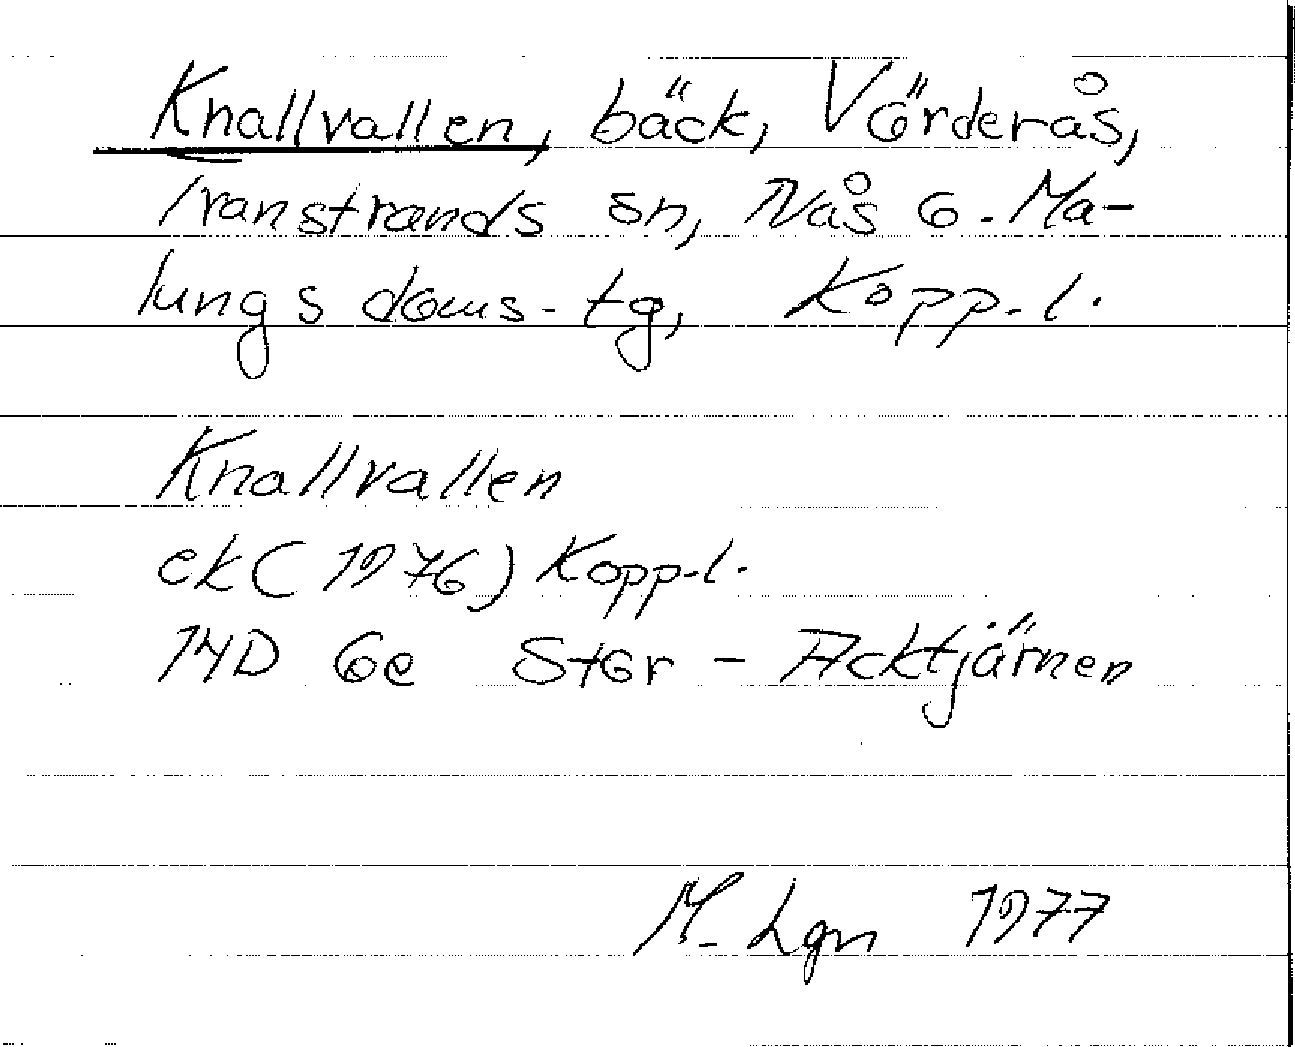 Knallvallen, bäck, Vörderås,
Transtrands sn, Nås o. Ma-
lungs doms. tg, Kopp. l.
Knallvallen
ek (1976) Kopp. l.
14D 6e Stor-Acktjärnen
M. Lgn 1977